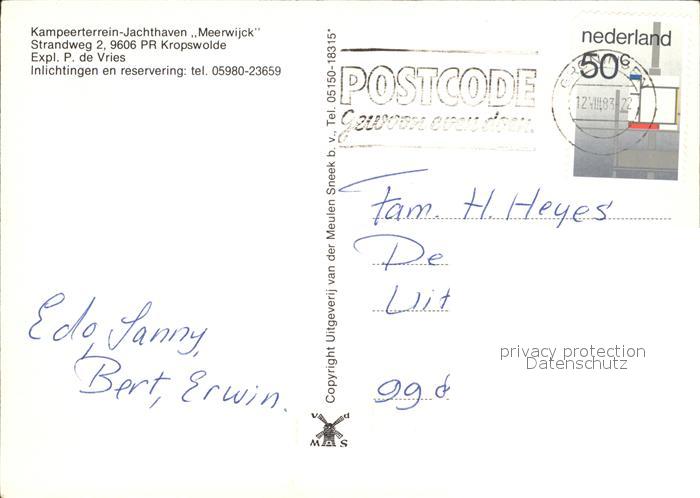 Kampeerterrein-Jachthaven ,,Meerwijck"
Strandweg 2, 9606 PR Kropswolde
Expl. P. de Vries
Inlichtingen en reservering: tel. 05980-23659
Edo, Sanny,
Bert, Erwin.
Copyright Uitgeverij van der Meulen Sneek b.v., Tel. 05150-18315*
V d
M S
POSTCODE
Gewoon even doen.
GRONINGEN
12.VII.83-22
nederland
50
Fam. H. Heyes
De
Uit
998
privacy protection
Datenschutz